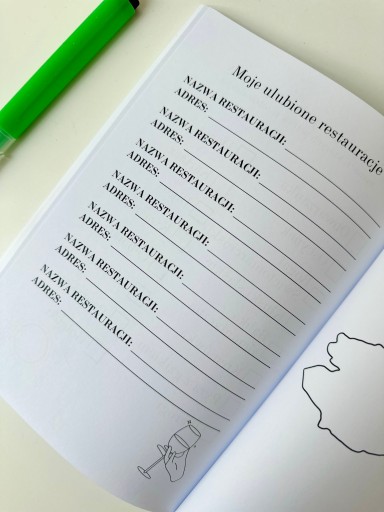 Moje ulubione restauracje
NAZWA RESTAURACJI:
ADRES:
NAZWA RESTAURACJI:
ADRES:
NAZWA RESTAURACJI:
ADRES:
NAZWA RESTAURACJI:
ADRES:
NAZWA RESTAURACJI:
ADRES:
NAZWA RESTAURACJI:
ADRES:
NAZWA RESTAURACJI:
ADRES: